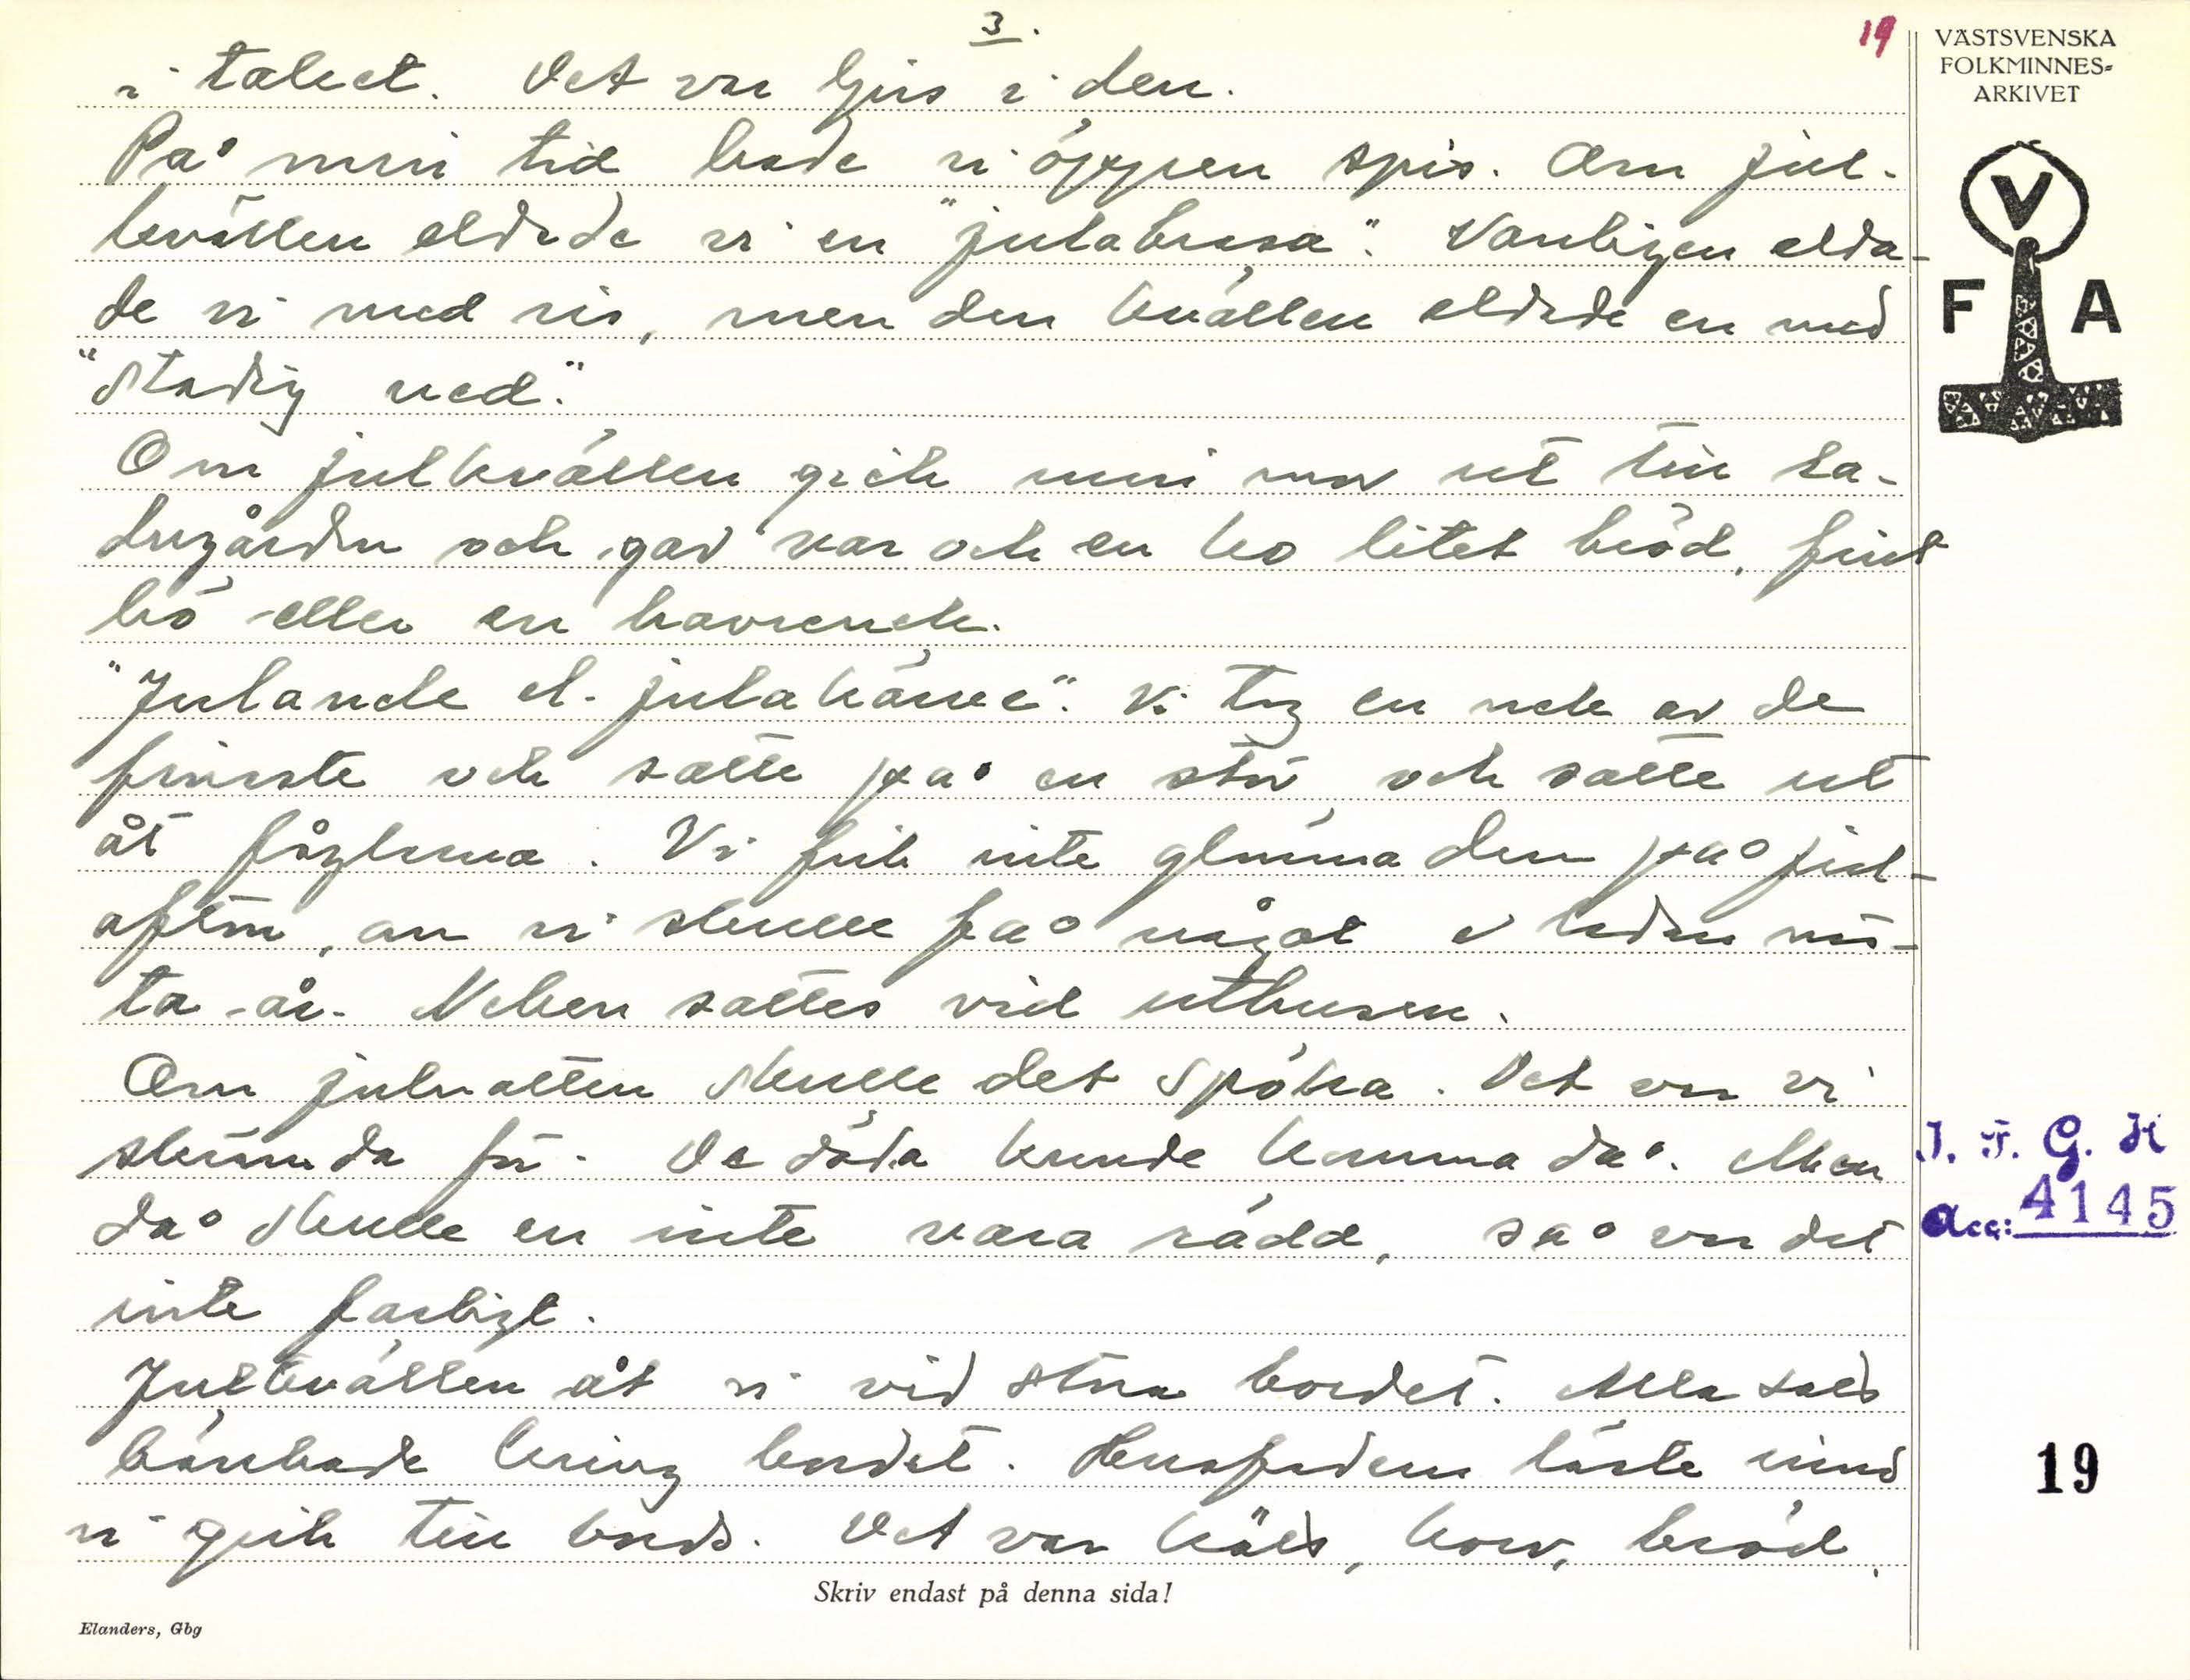 3.
19
VÄSTSVENSKA
FOLKMINNES-
ARKIVET
i taket. Det var ljus i den.
På min tid hade vi öppen spis. Om jul-
kvällen eldade vi en "julabrasa". Vanligen elda-
de vi med ris, men den kvällen eldade en med
"stadig ved".
Om julkvällen gick min mor ut till la-
dugården och gav var och en ko litet bröd, fint
hö eller en havrenek.
"Julanek el. julakärve". Vi tog en nek av de
finaste och satte på en stör och satte ut
åt fåglarna. Vi fick inte glömma den på jul-
afton, om vi skulle få något v säden näs-
ta år. Neken sattes vid uthusen.
Om julnatten skulle det spöka. Det var vi
skrämda för. De döda kunde komma då. Men
då skulle en inte vara rädd, så var det
inte farligt.
Julkvällen åt vi vid stora bordet. Alla satt
bänkade kring bordet. Husfadern läste innan
vi gick till bords. Det var kält, korv, bröd,
V
F A
J. F. G. H
Acc: 4145
19
Skriv endast på denna sida!
Elanders, Gbg